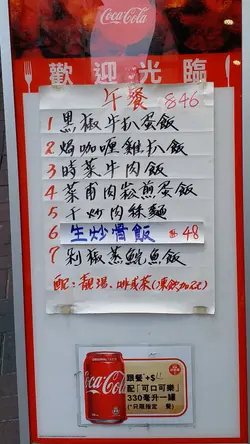 Coca-Cola
歡迎光臨
午餐 $46
1 黑椒牛扒蛋飯
2 焗咖喱雞扒飯
3 時菜牛肉飯
4 菜甫肉崧煎蛋飯
5 干炒肉絲麵
6 生炒骨飯 $48
7 剁椒蒸鯇魚飯
配：靚湯、啡或茶(凍飲加2元)
Coca-Cola
跟餐+$
配「可口可樂」
330毫升一罐
(*只限指定 餐)